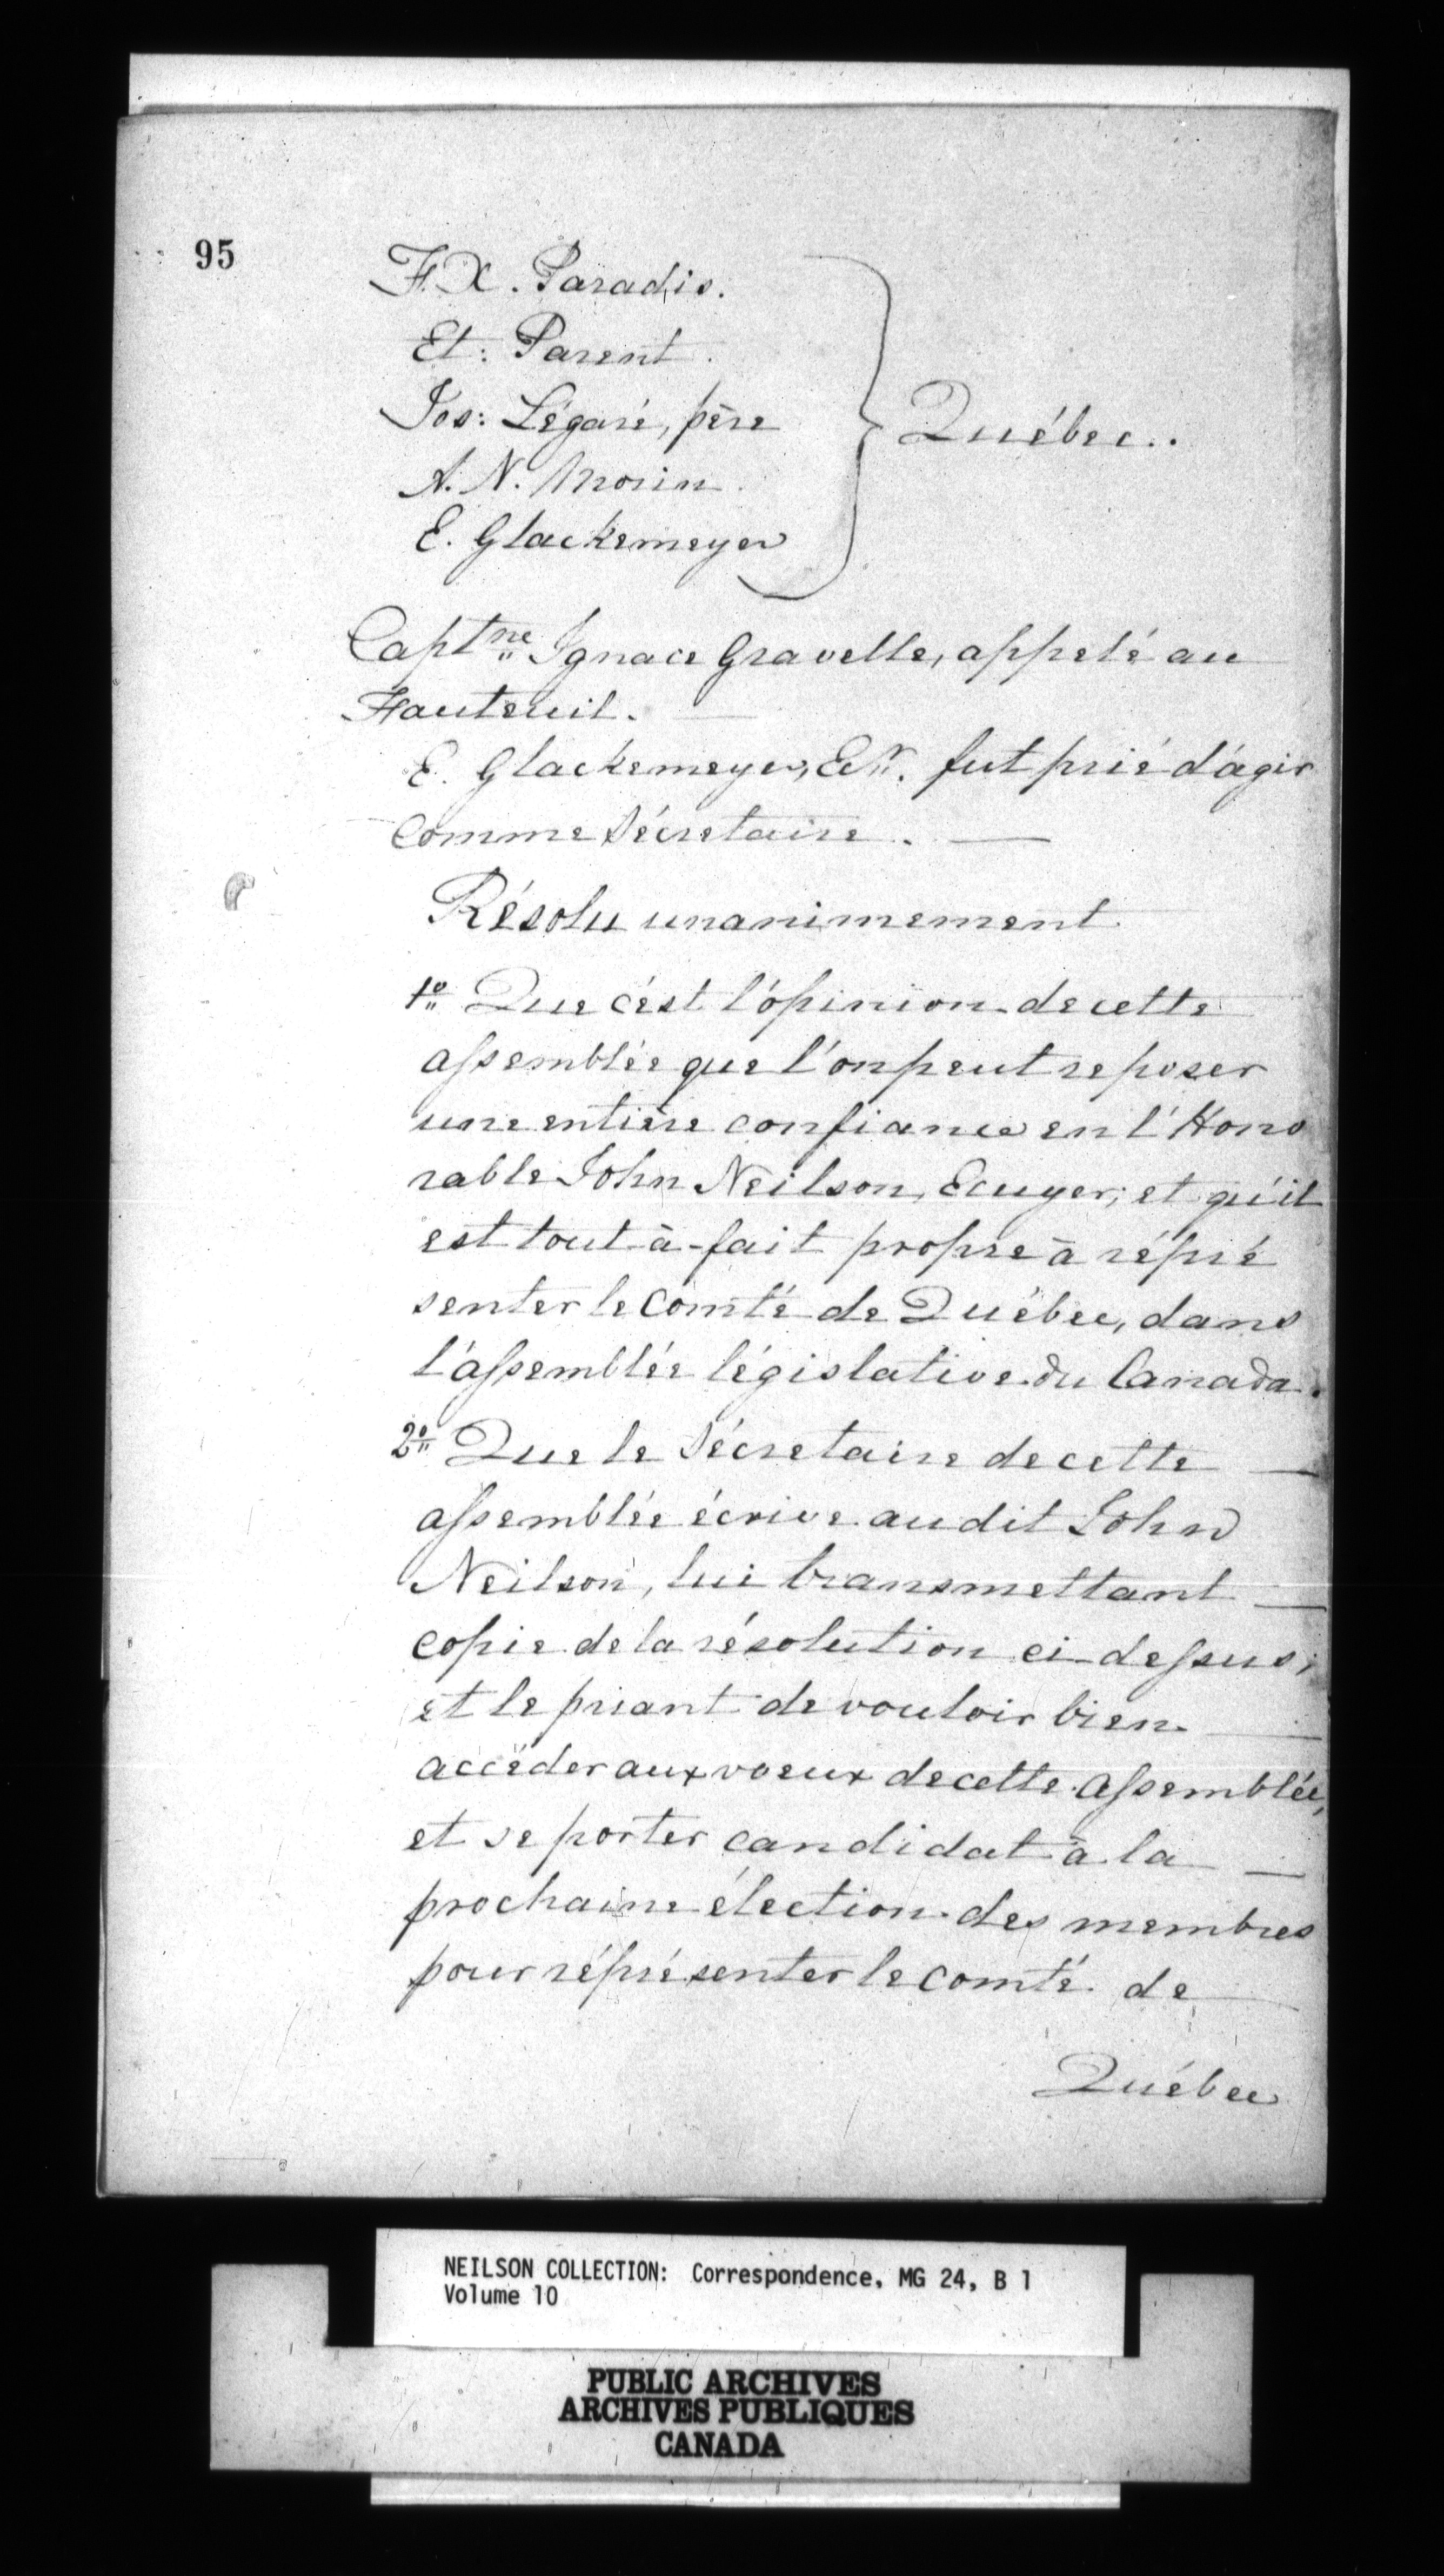 95
F. X. Paradis.
Et: Parent.
Jos: Légaré, père
A. N. Morin.
E. Glackemeyer
Québec..
Captne Ignace Gravelle, appelé au
Fauteuil. —
E. Glackemeyer, Ecr. fut prié d'agir
comme Sécretaire. —
Résolu unanimement
1o Que c'est l'opinion de cette
assemblée que l'on peut reposer
une entière confiance en l'Hono
rable John Neilson, Ecuyer; et qu'il
est tout-à-fait propre à répré
senter le Comté de Québec, dans
l'assemblée législative du Canada.
2o Que le Sécretaire de cette —
assemblée écrive au dit John
Neilson, lui transmettant —
copie de la résolution ci-dessus;
et le priant de vouloir bien —
accéder aux voeux de cette assemblée,
et se porter candidat à la —
prochaine élection des membres
pour réprésenter le comté de
Québec
NEILSON COLLECTION: Correspondence, MG 24, B 1
Volume 10
PUBLIC ARCHIVES
ARCHIVES PUBLIQUES
CANADA